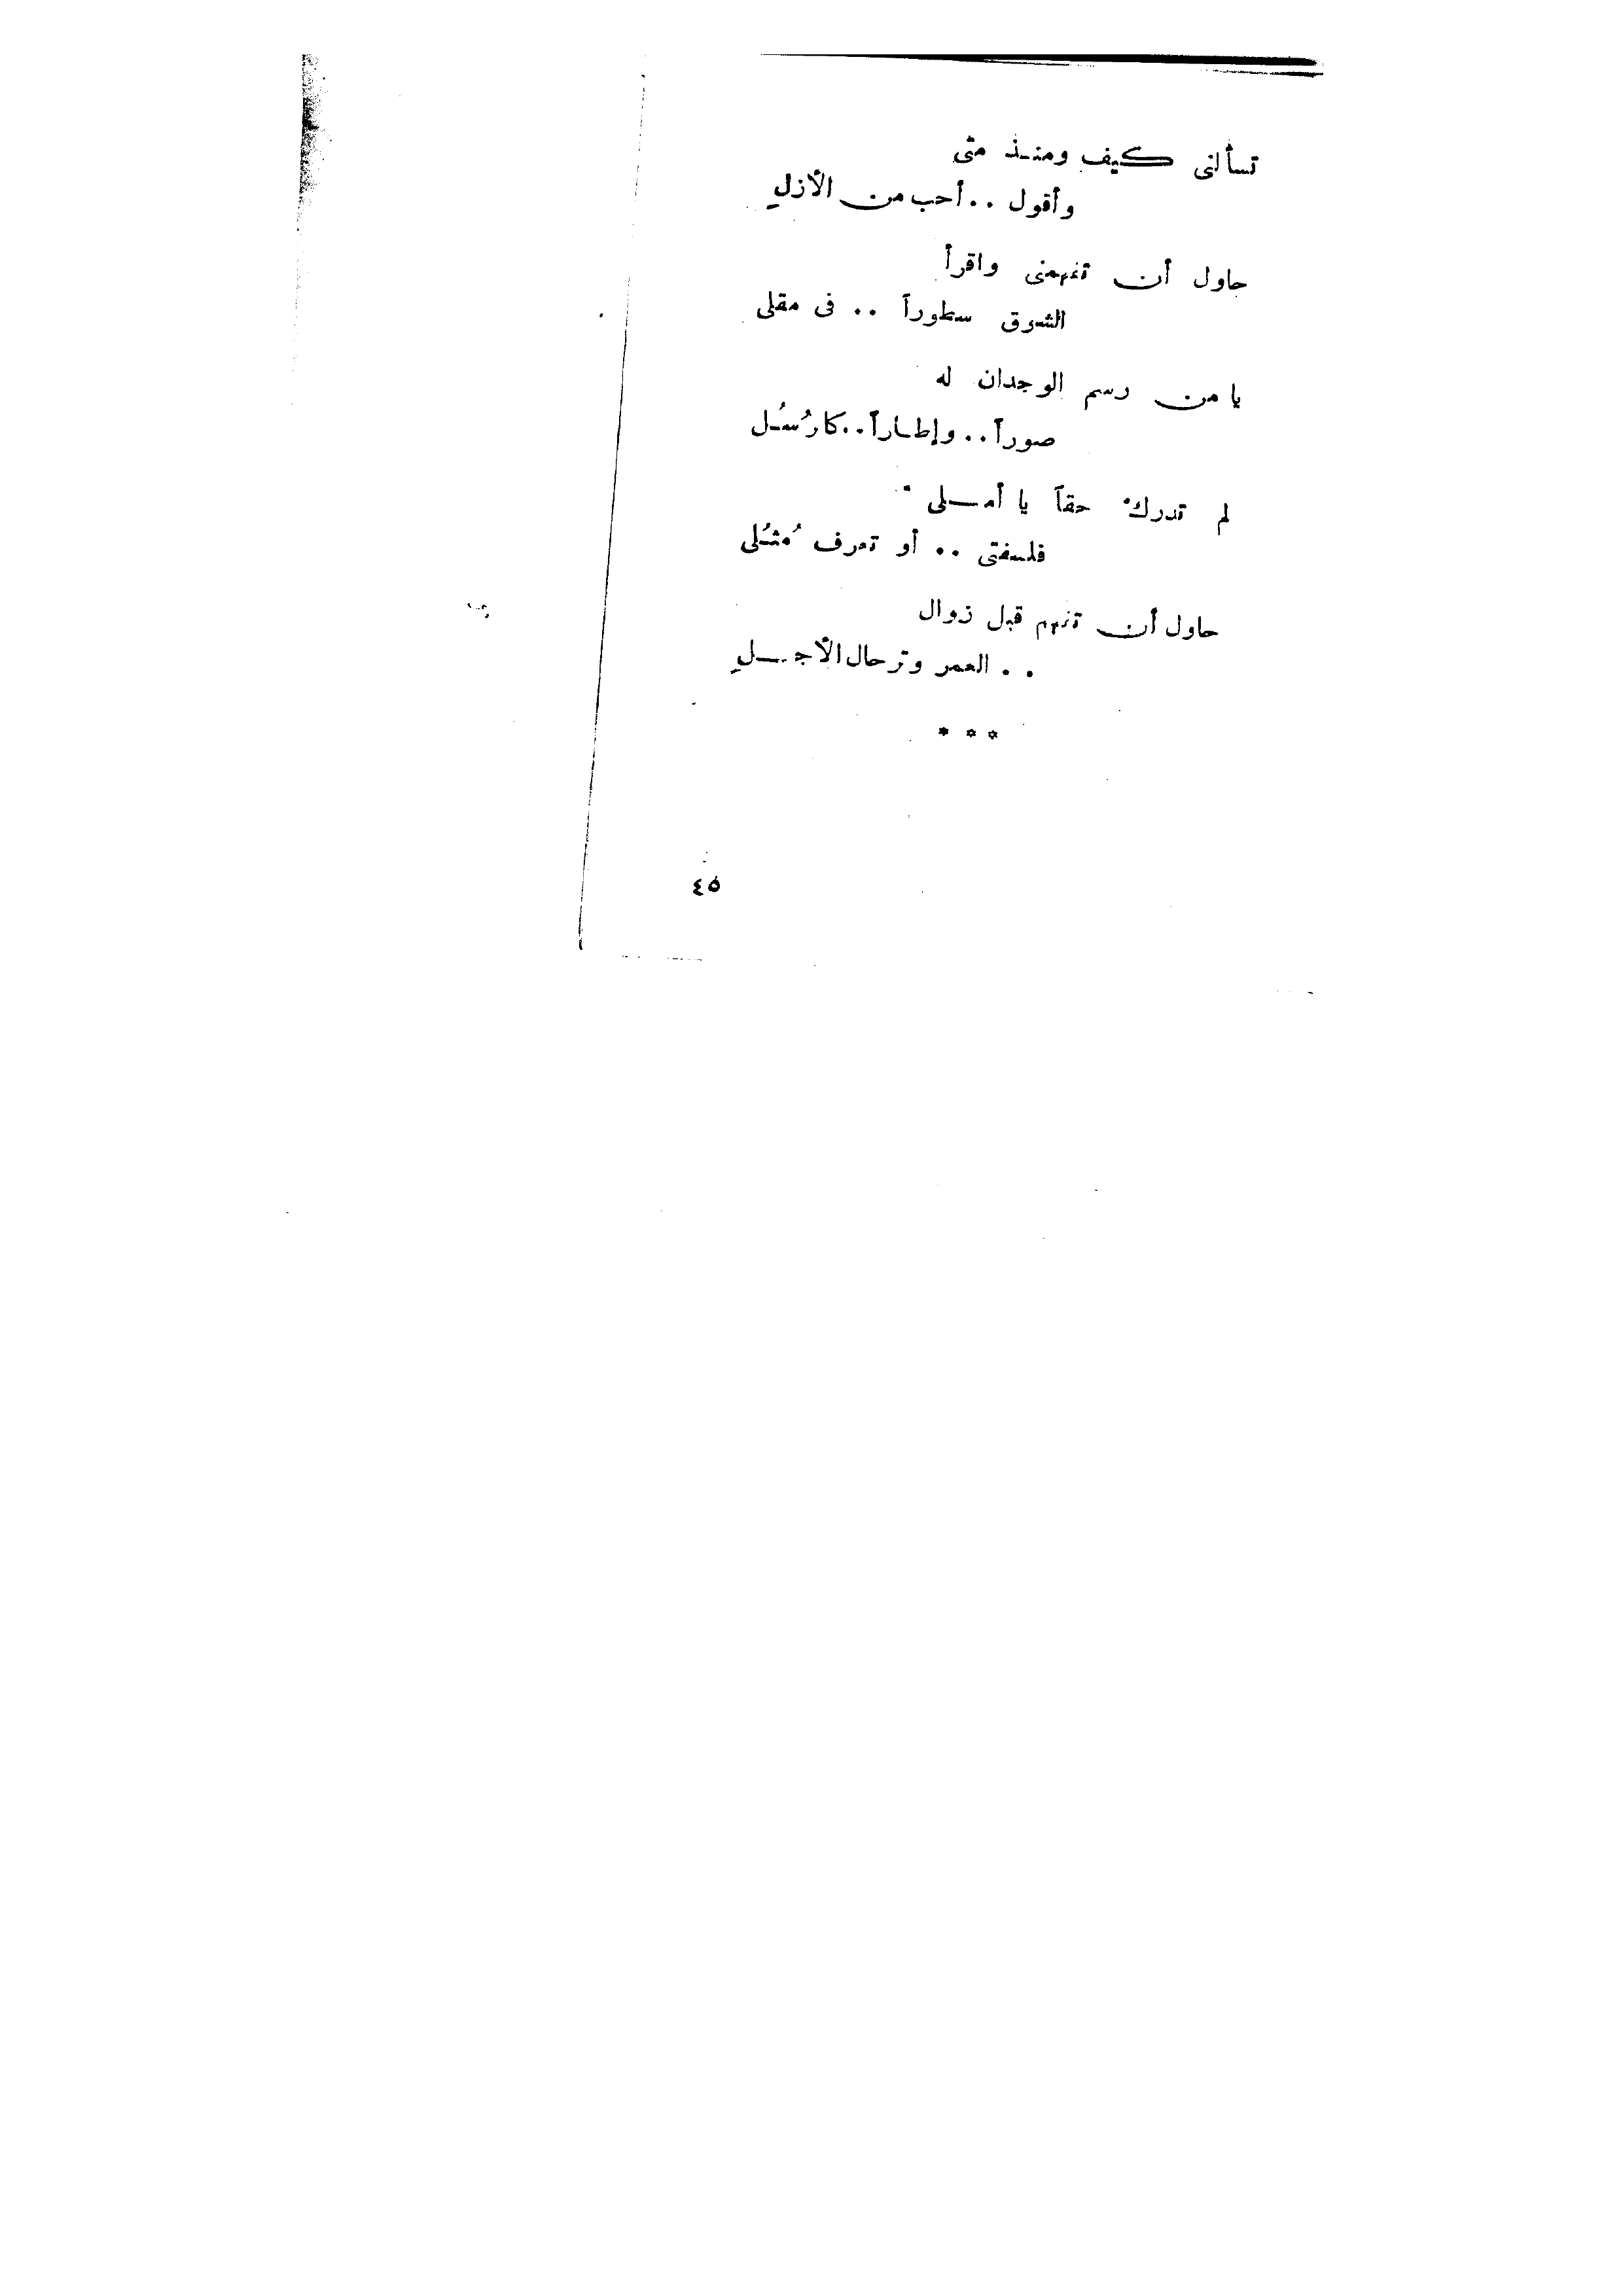 تسألنى كيف ومنذ متى
وأقول . . أحب من الأزلِ
حاول أن تفهمنى واقرأ
الشرق سطوراً . . فى مقلى
يا من رسم الوجدان له
صوراً . . وإطاراً . . كارُسُل
لم تدركْ حقاً يا أملى
فلسفتى . . أو تعرف مُثُلى
حاول أن تفهم قبل زوال
. . العمر وترحال الأجلِ
* * *
٤٥